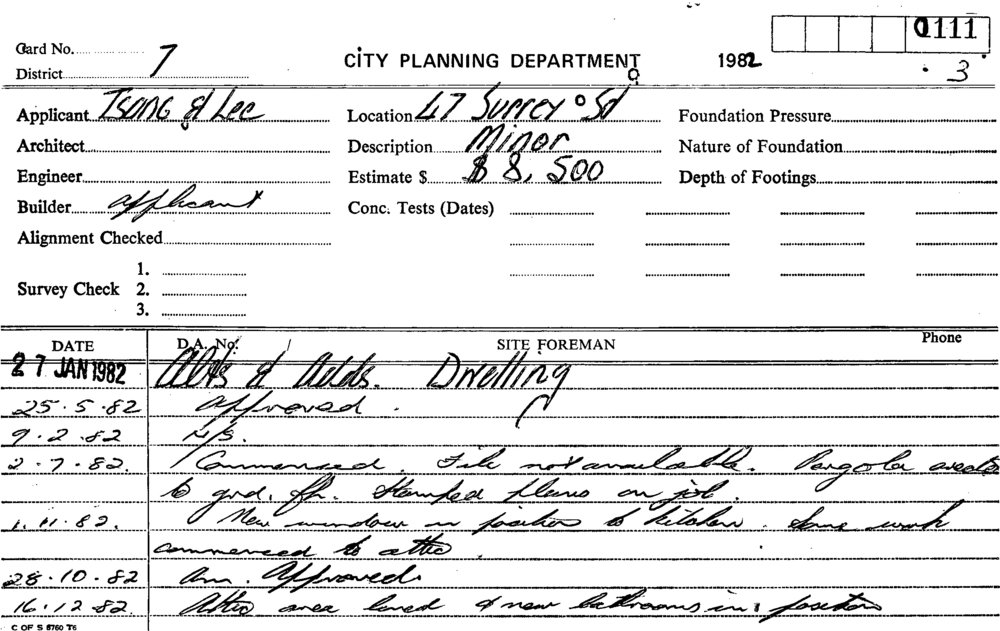 0111
Card No. 7
CITY PLANNING DEPARTMENT 1982
District 3
Applicant Tsang & Lee Location 47 Surrey St Foundation Pressure
Architect Description Minor Nature of Foundation
Engineer Estimate $ $ 8,500 Depth of Footings
Builder applicant Conc. Tests (Dates)
Alignment Checked
1.
Survey Check 2.
3.
DATE D.A. No. SITE FOREMAN Phone
27 JAN 1982 Alts & Adds. Dwelling
25.5.82 approved.
9.2.82 N/S.
2.7.82. Commenced. File not available. Pargola erected
to grd. flr. Stamped plans on job.
1.11.82. New window in position to kitchen. Some work
commenced to attic.
28.10.82 Am. Approved.
16.12.82 Attic area lined & new bathrooms in position
C OF S 6760 T6